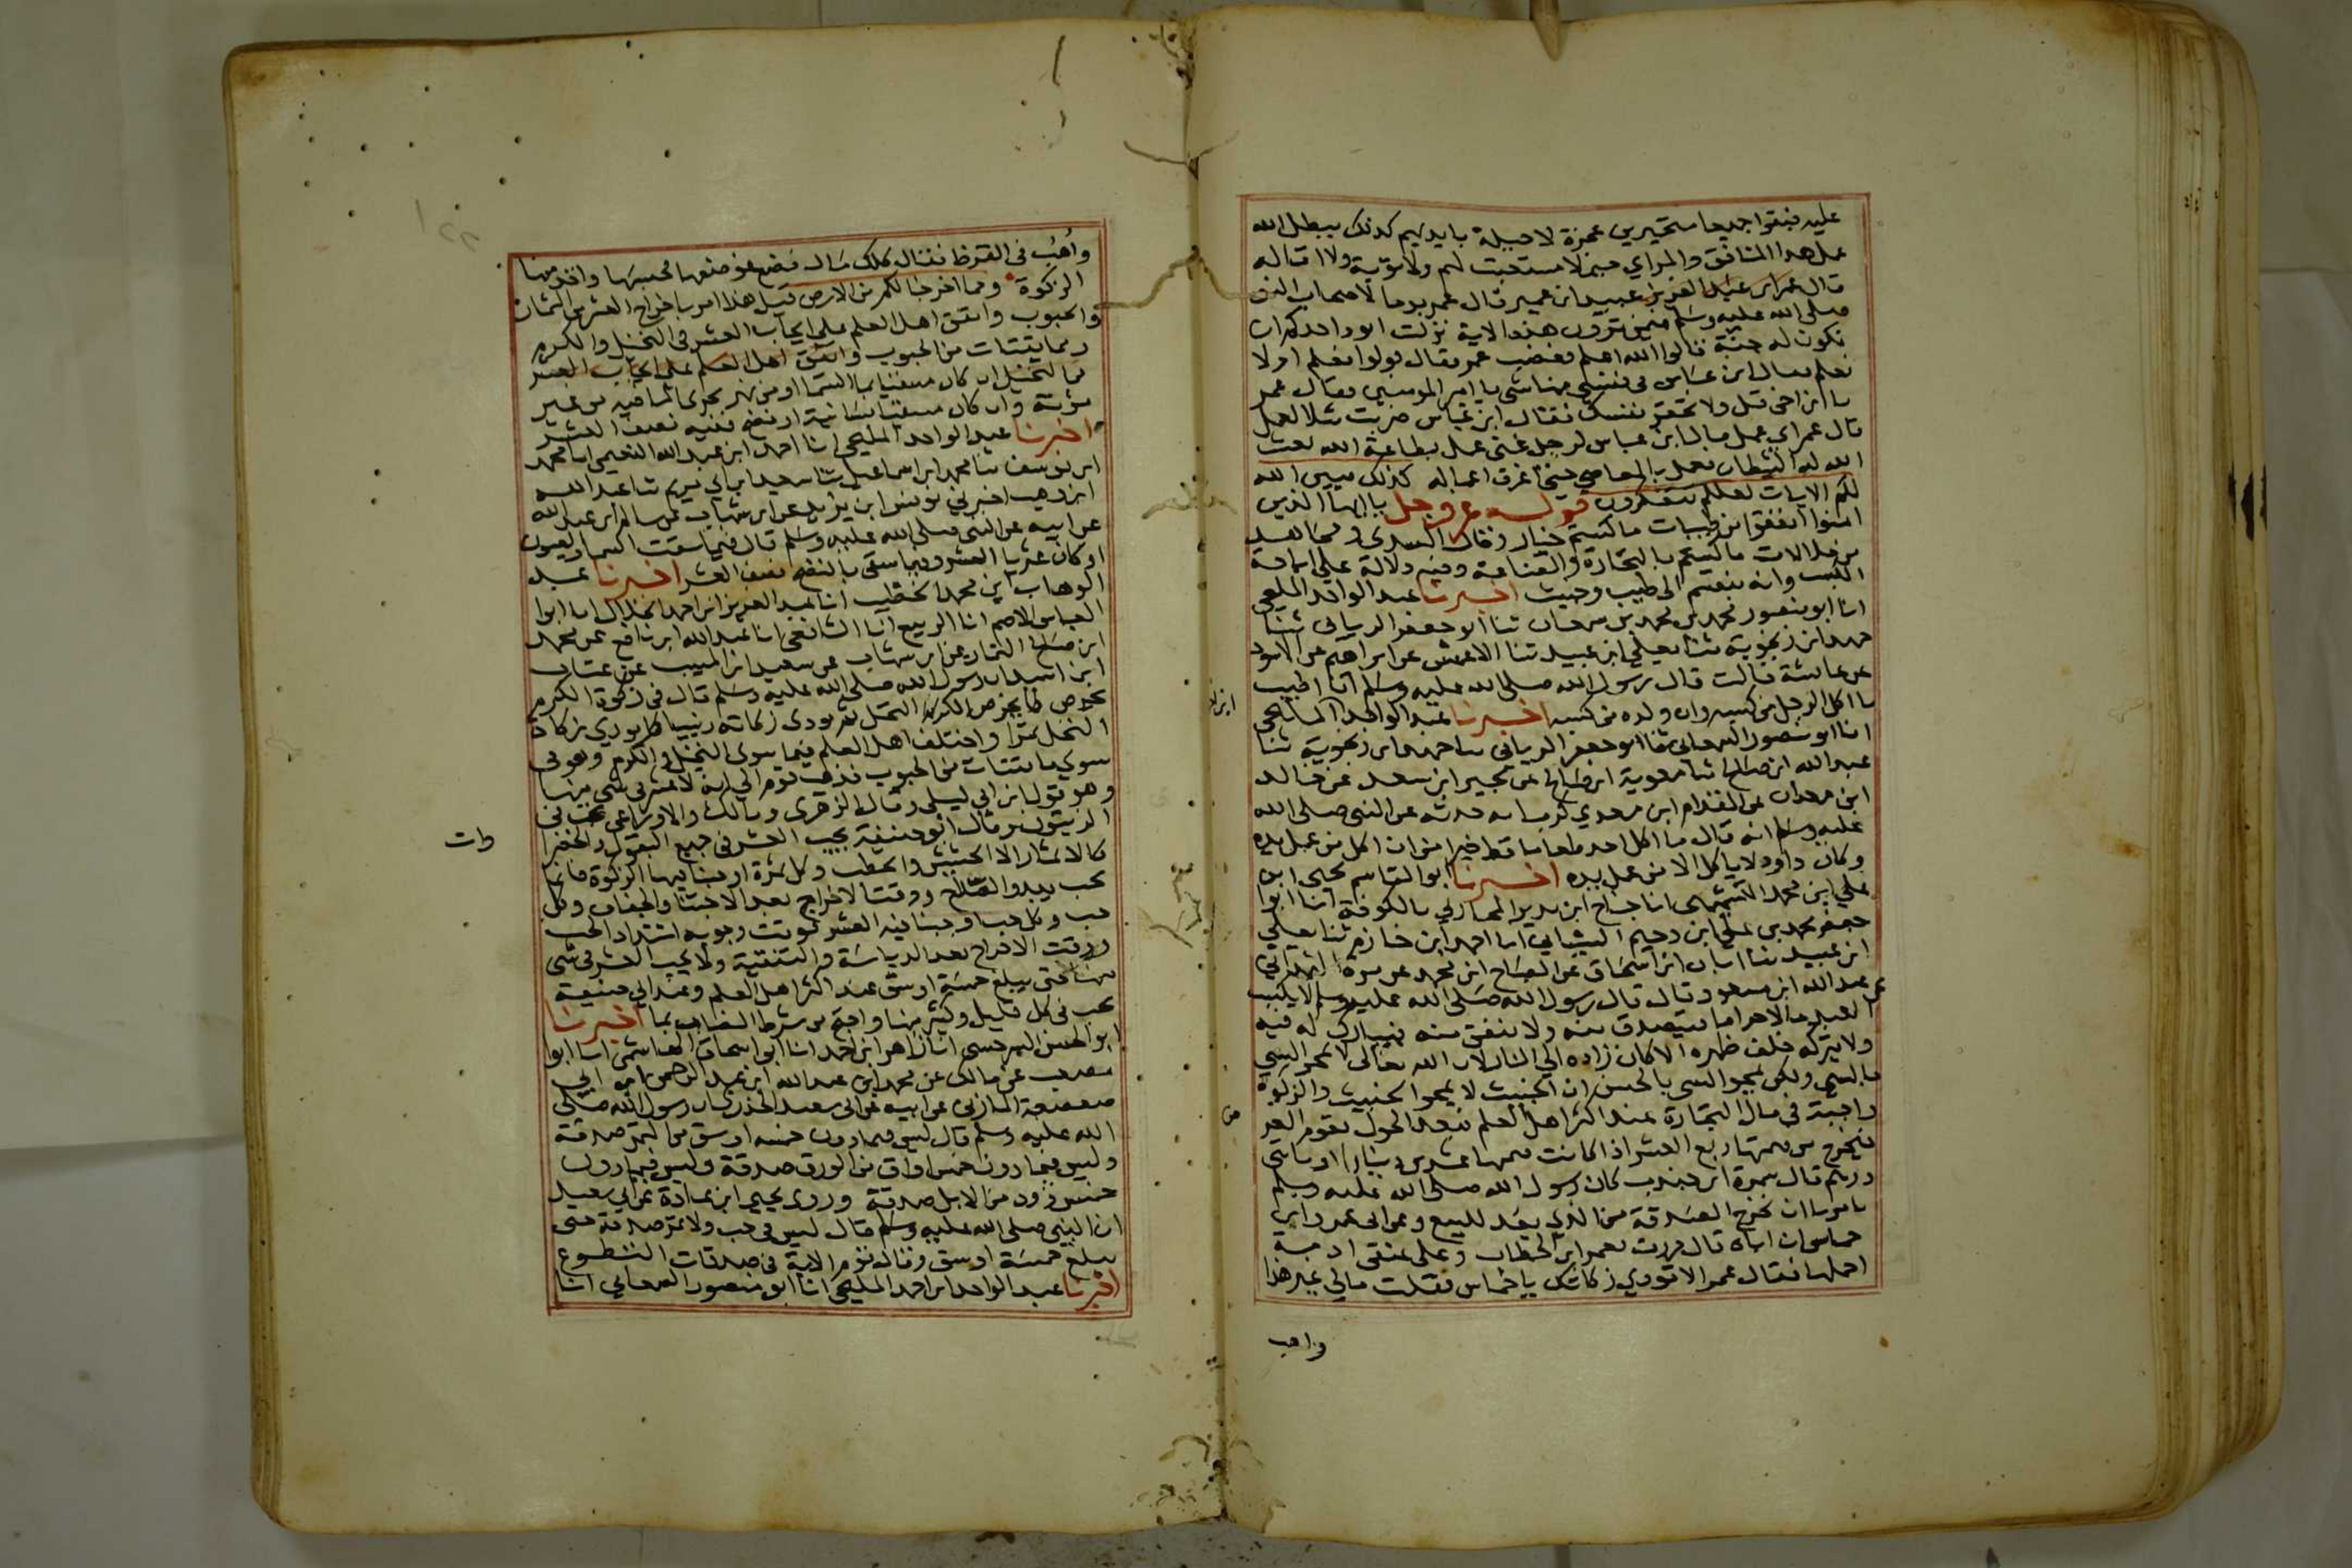 عليه فبقوا جميعا متحيرين عجزة لا حيلة بايديهم كذلك يبطل الله
عمل هذا المنافق والمراي حين لا مستعتب لهم ولا توبة ولا اقالة
قال عبيد ابن عمير قال عمر يوما لاصحاب النبى
صلى الله عليه وسلم فيمن ترون هذه الاية نزلت ايود احدكم ان
تكون له جنة قالوا الله اعلم فغضب عمر فقال قولوا نعلم او لا
نعلم فقال ابن عباس في نفسي منها شي يا امير المومنين فقال عمر
يا ابن اخي قل ولا تحقر نفسك فقال ابن عباس ضربت مثلا لعمل
قال عمر اي عمل قال ابن عباس لرجل غنى عمل بطاعة الله بعث
الله له الشيطان فعمل بالمعاصي حتى اغرق اعماله كذلك يبين الله
لكم الايات لعلكم تتفكرون قوله عز وجل يا ايها الذين
امنوا انفقوا من طيبات ما كسبتم خيار وقال السدى ومجاهد
من حلالات ما كسبتم بالتجارة والصناعة وفيه دلالة على اباحة
الكسب وانه ينقسم الى طيب وخبيث اخبرنا عبد الواحد المليحى
انا ابو منصور محمد بن محمد بن سمعان ثنا ابو جعفر الريانى ثنا
حميد ابن زنجوية ثنا يعلى ابن عبيد ثنا الاعمش عن ابراهيم عن الاسود
عن عائشة قالت قال رسول الله صلى الله عليه وسلم ان اطيب
ما اكل الرجل من كسبه وان ولده من كسبه اخبرنا عبد الواحد المليحى
انا ابو منصور السمعانى ثنا ابو جعفر الريانى ثنا حميد ابن زنجوية ثنا
عبد الله ابن صالح ثنا معوية ابن صالح عن بحير ابن سعد عن خالد
ابن معدان عن المقدام ابن معدي كرب انه حدثه عن النبى صلى الله
عليه وسلم انه قال ما اكل احد طعاما قط خيرا من ان اكل من عمل يده
وكان داود لا ياكل الا من عمل يده اخبرنا ابو القاسم يحيى ابن
على ابن محمد الكشميهنى انا جناح ابن نذير المحاربي بالكوفة انا ابوا
جعفر محمد بن على ابن دحيم الشيبانى انا احمد ابن حازم ثنا يعلى
ابن عبيد ثنا ابان ابن اسحاق عن الصباح ابن محمد عن مرة الهمدانى
عن عبد الله ابن مسعود قال قال رسول الله صلى الله عليه وسلم لا يكتسب
العبد مالا حراما فيتصدق منه ولا ينفق منه فيبارك له فيه
ولا يتركه خلف ظهره الا كان زاده الى النار ان الله تعالى لا يمحو السي
بالسي ولكن يمحو السى بالحسن ان الخبيث لا يمحوا الخبيث والزكوة
واجبة في مال التجارة عند اكثر اهل العلم فبعد الحول يقوم العر
فيخرج من قيمتها ربع العشر اذا كانت قيمتها عشرين دينارا او مائتى
درهم قال سمرة ابن جندب كان رسول الله صلى الله عليه وسلم
يامرنا ان نخرج الصدقة من الذي يعد للبيع وعن ابى عمرو ابن
حماس ان اباه قال مررت بعمر ابن الخطاب وعلى عنقى ادمة
احملها فقال عمر الا تودي زكاتك يا حماس فقلت مالي غير هذا
واهب
واهب فى القرظ فقال كلك مال فضع فوضعها فحسبها واخذ منها
الزكوة ومما اخرجنا لكم من الارض قيل هذا امر باخراج العشر من الثمار
والحبوب واتفق اهل العلم على ايجاب العشر في النخيل والكرم
وبما يقتات من الحبوب واتفق اهل العلم على ايجاب العشر
ان كان مسقيا بما السما او من نهر يجرى الما فيه من غير
مؤنة وان كان مسقيا بسانية او نضح ففيه نصف العشر
اخبرنا عبد الواحد المليحى انا احمد ابن عبد الله النعيمى انا محمد
ابن يوسف ثنا محمد ابن اسماعيل ثنا سعيد ابن ابى مريم ثنا عبد الله
ابن وهب اخبرني يونس ابن يزيد عن ابن شهاب عن سالم ابن عبد الله
عن ابيه عن النبى صلى الله عليه وسلم قال فيما سقت السما والعيون
او كان عثريا العشر وفيما سقى بالنضح نصف العشر اخبرنا عبد
الوهاب ابن محمد الخطيب انا عبد العزيز ابن احمد الخلال انا ابوا
العباس الاصم انا الربيع انا الشافعى انا عبد الله ابن نافع عن محمد
ابن صالح التمار عن ابن شهاب عن سعيد ابن المسيب عن عتاب
ابن اسيد ان رسول الله صلى الله عليه وسلم قال في زكوة الكرم
تخرص كما يخرص النخل ثم يودى زكاته زبيبا كما يودي زكاة
النخل تمرا واختلف اهل العلم فيما سوى النخيل والكرم وهو في
سوى ما يقتات من الحبوب فذهب قوم الى انه لا عشر في شى منها
وهو قول ابن ابى ليلى وقال الزهرى ومالك والاوزاعى يجب فى
الزيتون وقال ابو حنيفة يجب العشر فى جميع البقول والخضرا
كالاثمار الا الحشيش والحطب وكل ثمرة اوجبنا فيها الزكوة فانما
يجب ببدو الصلاح ووقت الاخراج بعد الاجتنا والجفاف وكل
حب وكل حب اوجبنا فيه العشر فوقت وجوبه اشتداد الحب
ووقت الاخراج بعد الدياسة والتنقية ولا يجب العشر فى شى
منها حتى يبلغ خمسة اوسق عند اكثر اهل العلم وعند ابى حنيفة
يجب فى كل قليل وكثير منها اخبرنا
ابو الحسن السرخسى انا زاهر ابن احمد انا ابو اسحاق الهاشمى انا ابوا
مصعب عن مالك عن محمد ابن عبد الله ابن عبد الرحمن ابن ابى
صعصعة المازنى عن ابيه عن ابى سعيد الخدرى ان رسول الله صلى
الله عليه وسلم قال ليس فيما دون خمسة اوسق من التمر صدقة
وليس فيما دون خمس اواق من الورق صدقة وليس فيما دون
خمس ذود من الابل صدقة وروى يحيى ابن عمارة عن ابى سعيد
ان النبى صلى الله عليه وسلم قال ليس فى حب ولا تمر صدقة حتى
يبلغ خمسة اوسق وقال قوم الاية فى صدقات التطوع
اخبرنا عبد الواحد ابن احمد المليحى انا ابو منصور السمعانى انا